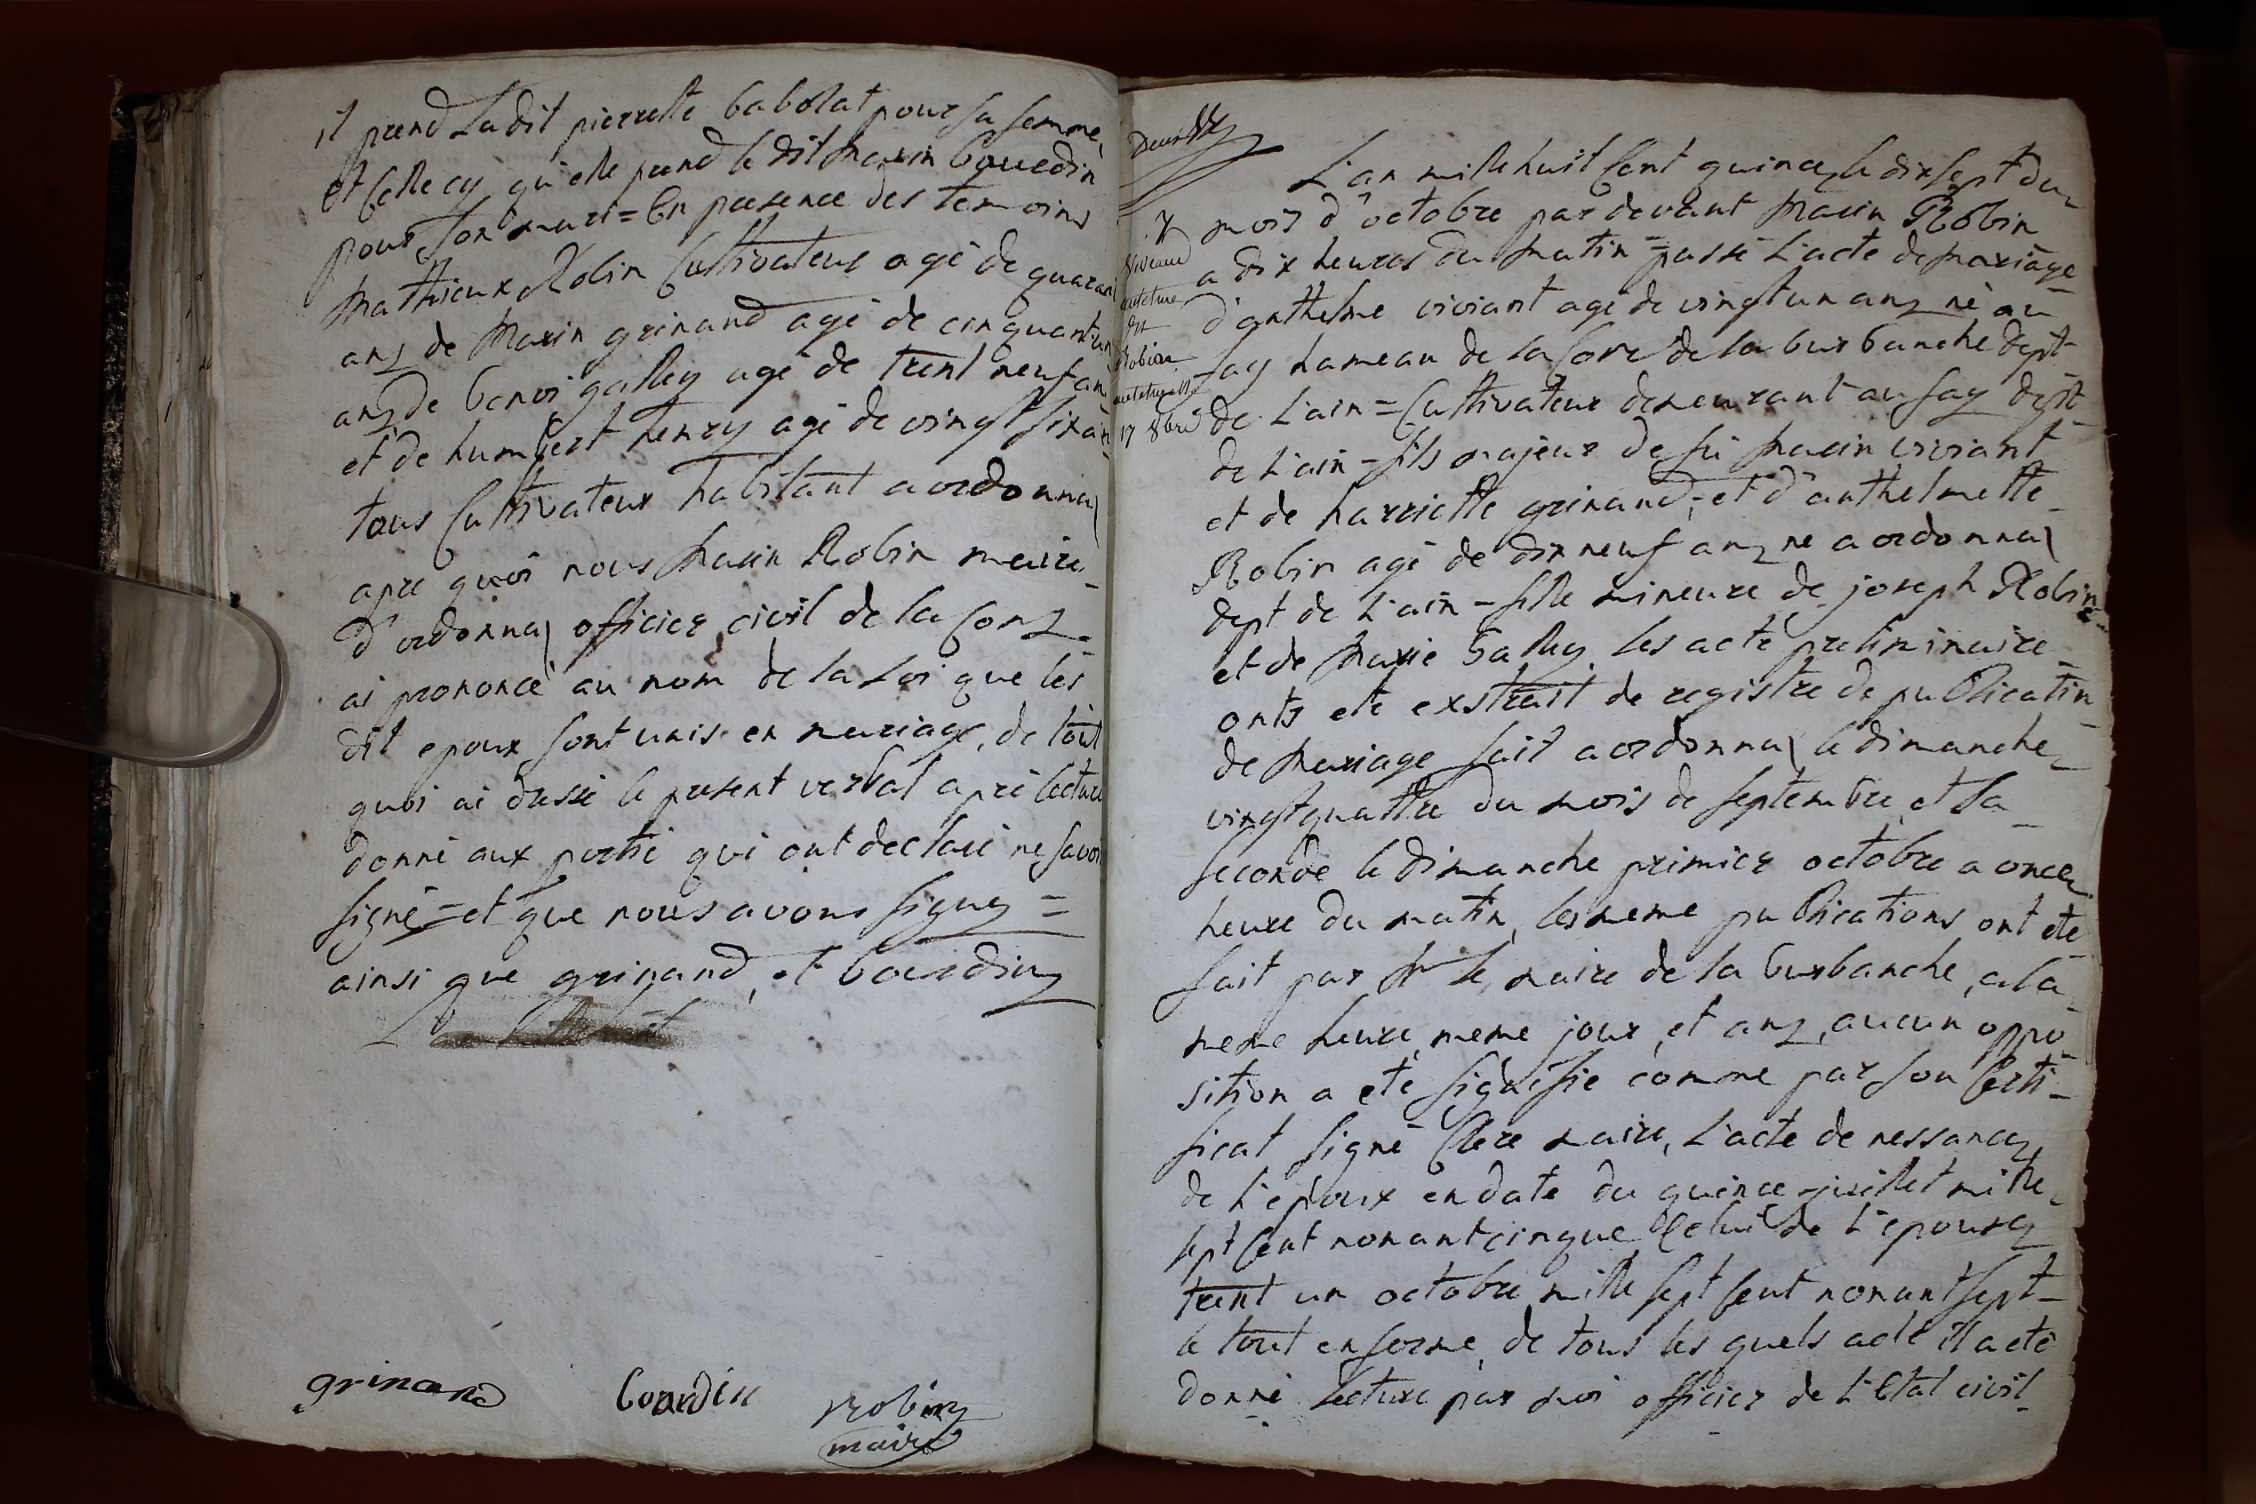 il prend Ladit pierrette babolat pour sa femme,
et celle cy qu'elle prend le dit Marin Bourdin
pour son mari = En presence des temoins
Mathieux Robin Cultivateur agé de quarant
anz de Marin grinand agé de cinquant un
anz de benoi galley agé de trent neuf an
et de humbert henry agé de vingt six an
tous Cultivateur habitant a ordonnaz
apre quoi nous Marin Robin maire
d'ordonnaz officier civil de la Comz
ai prononcé au nom de la Loi que les
dit epoux sont unis en mariage, de tout
quoi ai dressé le present verbal aprè lecture
donné aux partie qui ont declaré ne savoi
signé = et que nous avons signez =
ainsi que grinand, et bourding
grinand Bourdin Robin
maire
L'an mille huit Cent quince le dix sept du
mois d'octobre par devant Marin Robin
a dix heures du Matin = passé L'acte de Mariage
d'anthelme viviant agé de vingt un anz né au
fay hameau de la Come de la burbanche dept
de L'ain = Cultivateur demeurant au fay dept
de L'ain - fils majeur de fu Marin viviant
et de harriette grinand, et d'anthelmette
Robin agé de dix neuf anz ne a ordonnaz
dept de L'ain - fille mineure de joseph Robin
et de Marie Galley. les acte preliminaire
onts eté exstrait de registre de publication
de Mariage fait a ordonnaz le dimanche
vingt quattre du mois de septembre et la
seconde le dimanche primier octobre a once
heure du matin, les meme publications ont eté
fait par Mr le maire de la burbanche, a la
meme heure, meme jour, et anz, aucun oppo-
sition a eté signifie comme par son Certi-
ficat signé Clerc maire, L'acte de nessance
de L'epoux en date du quince juillet mille
sept Cent nonant cinque Celui de L'epouse
trent un octobre mille sept Cent nonant sept
le tout en forme, de tous les quels acte il a eté
donné lecture par moi officier de L'Etat civil
Robin
17 8bre